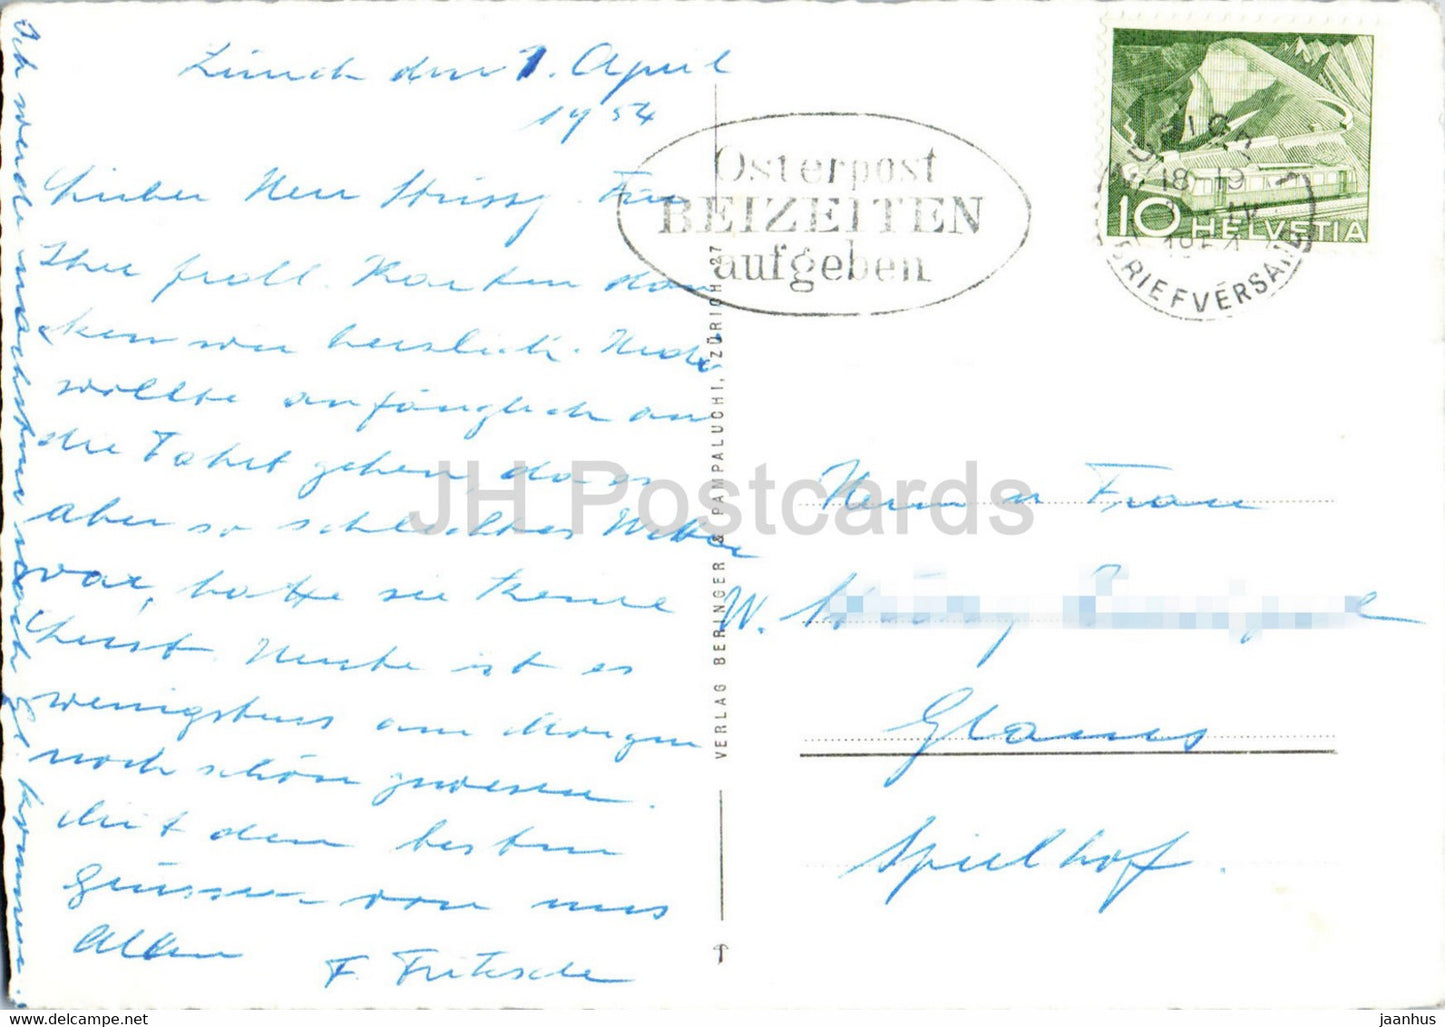 Zürich den 1. April
1954
Lieber Herr Stüssy. Für
Ihre frdl. Karten dan
ken wir herzlich. Hedi
wollte anfänglich an
die Fahrt gehen, da es
aber so schlechtes Wetter
war, hatte sie keine
Heute ist es
wenigstens am Morgen
noch schön gewesen.
Mit den besten
Grüssen von uns
Allen
F. Fritzsche
Ich werde nach kommen.
VERLAG BERINGER & PAMPALUCHI, ZÜRICH 27
Osterpost
BEIZEITEN
aufgeben
18-19
1954
BRIEFVERSAND
10 HELVETIA
Herrn u Frau
W.
Glarus
Spielhof.
JH Postcards
jaanhus